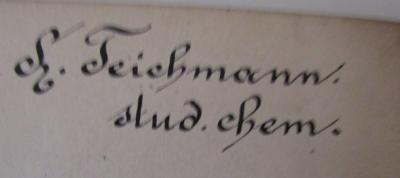 H. Teichmann.
stud. chem.